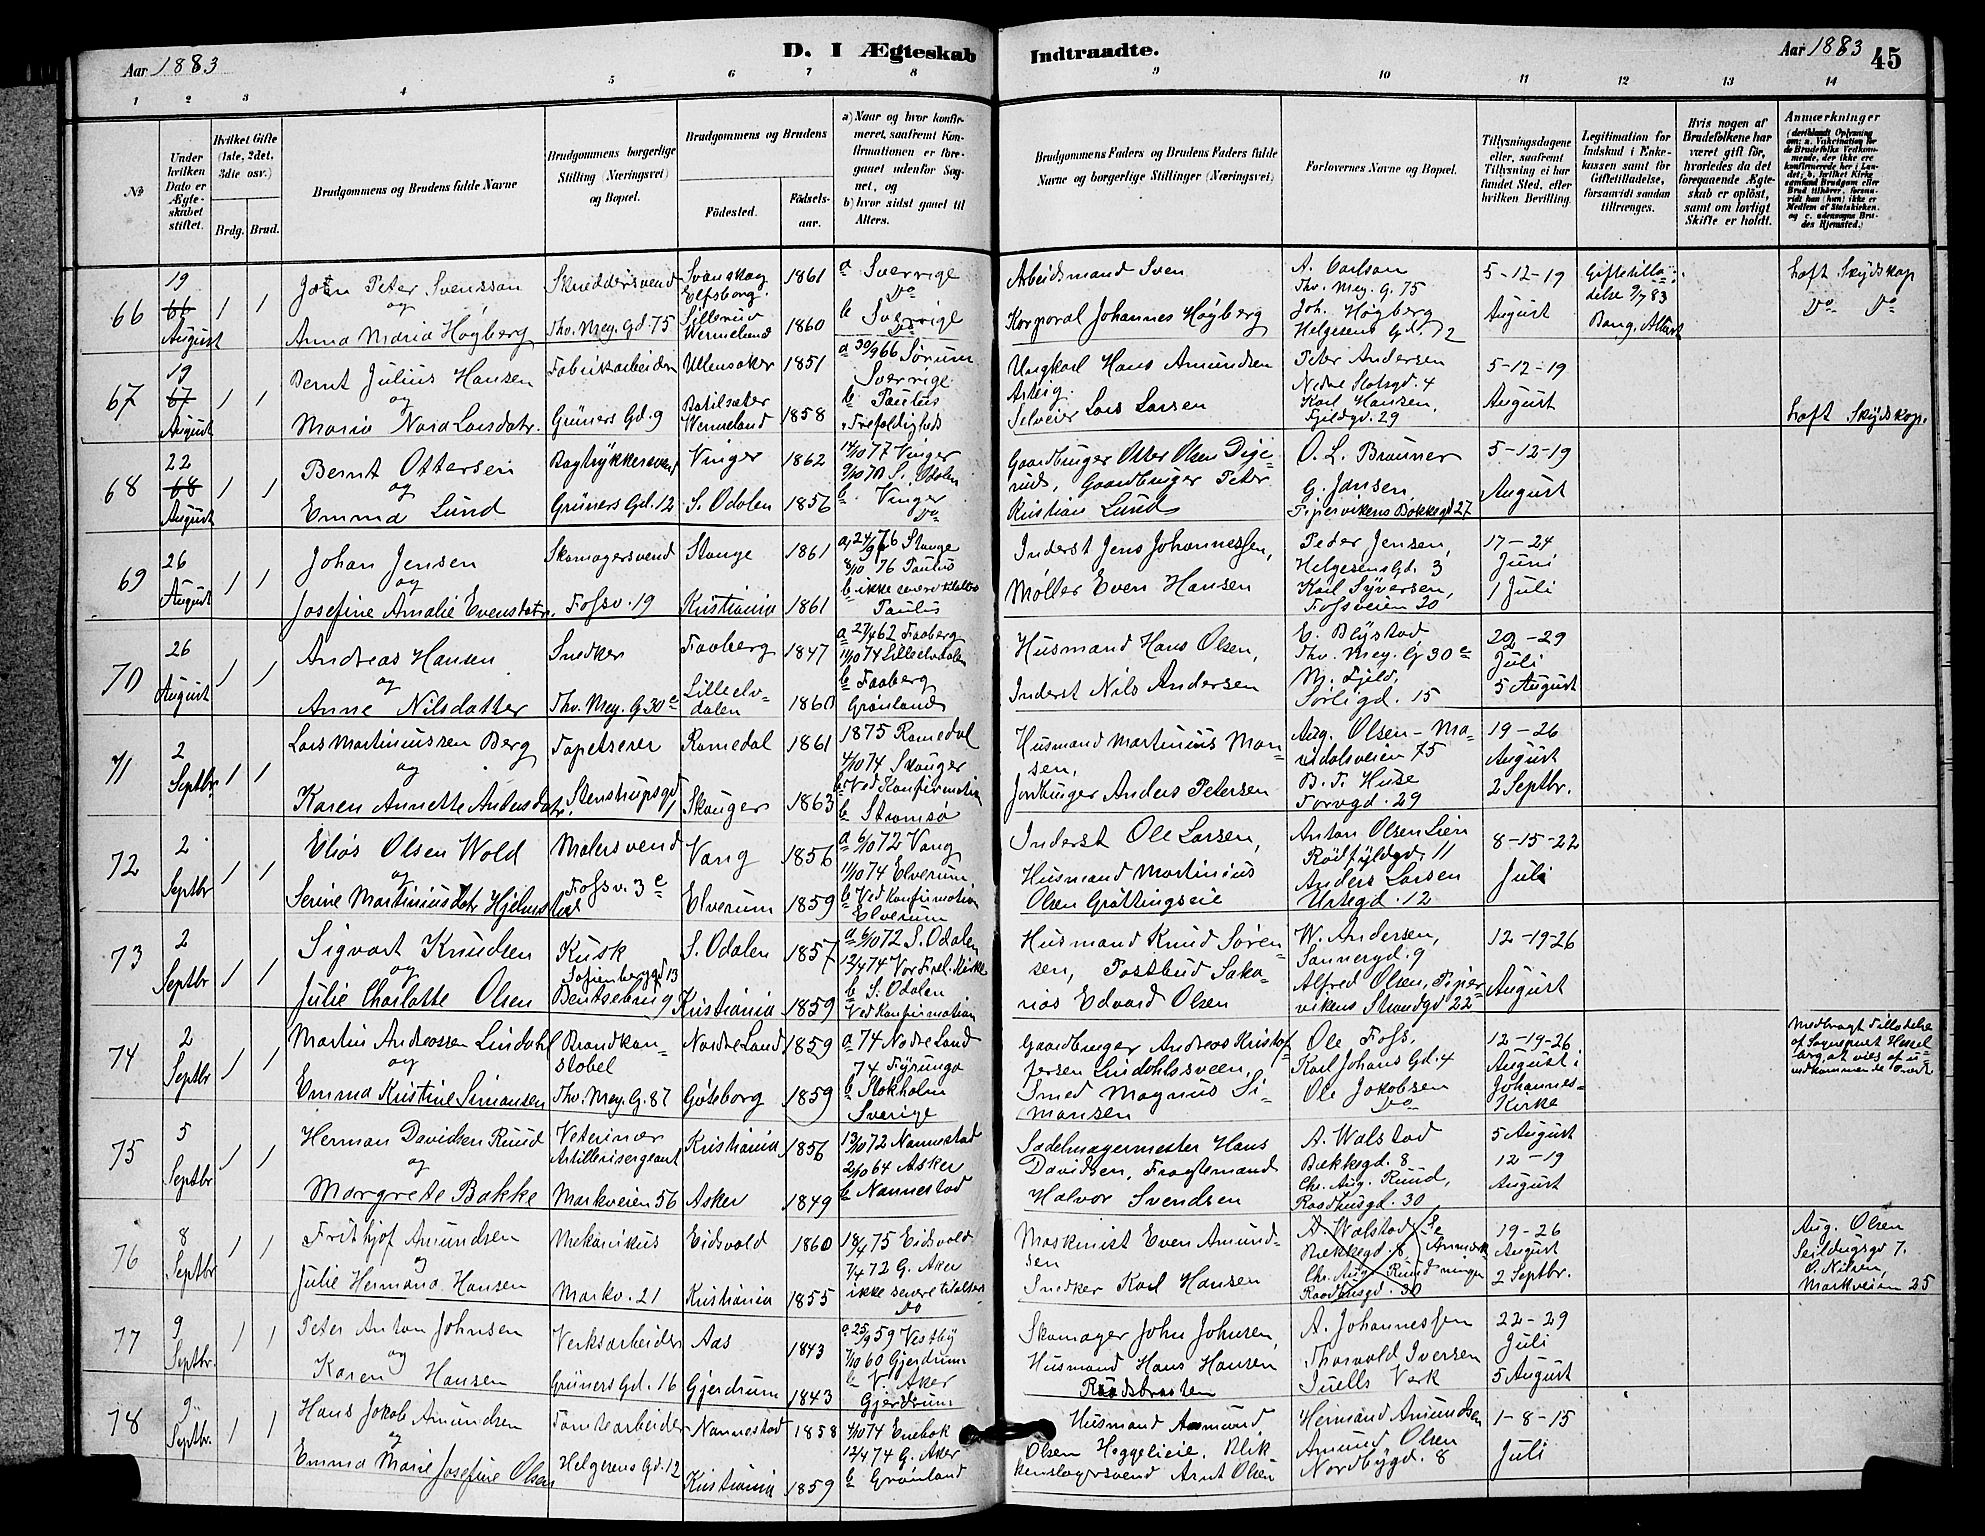 Aar 1883
D. I Ægteskab
Indtraadte.
Aar 1883
45
1 2 3 4 5 6 7 8 9 10 11 12 13 14
№
Under hvilken Dato er Ægteskabet stiftet.
Hvilket Gifte (1ste, 2det, 3die osv.)
Brdg. Brud.
Brudgommens og Brudens fulde Navne
Brudgommens borgerlige Stilling (Næringsvei) og Bopæl.
Brudgommens og Brudens
Fødested.
Fødselsaar.
a) Naar og hvor konfirmeret, saafremt Konfirmationen er foregaaet udenfor Sognet, og
b) hvor sidst gaaet til Alters.
Brudgommens Faders og Brudens Faders fulde Navne og borgerlige Stillinger (Næringsvei)
Forlovernes Navne og Bopæl.
Tillysningsdagene eller, saafremt Tillysning ei har fundet Sted, efter hvilken Bevilling.
Legitimation for Indskud i Enkekassen samt for Giftetilladelse, forsaavidt saadan tiltrænges.
Hvis nogen af Brudefolkene har været gift før, hvorledes da det foregaaende Ægteskab er opløst, samt om lovligt Skifte er holdt.
Anmærkninger
66
19 August
1 1
Svensson
og
Anna Maria Høgberg
Skreddersvend
Thv. Mey. Gd 75
Svanskog
Elfsborg
Vermeland
1861
1860
a Sverrige
Do
b Sverrige
Do
Arbeidsmand Sven
Korporal Johannes Høgberg
A. Carlson
Thv. Mey. G. 75
Joh. Høgberg
Helgesens Gd. 72
5-12-19
August
Giftetilla-
delse 9/7 83
Bang, Attest
haft Skydskop
Do Do
67
19 August
1 1
Bernt Julius Hansen
og
Fabrikarbeider
Grüners Gd. 9
Ullensaker
Vermeland
1851
1858
a 30/9 66 Sørum
Sverrige
b Paulus
Trefoldigheds
Ungkarl Hans Amundsen
Selveier Lars Larsen
Peter Andersen
Nedre Slotsgd. 4
Karl Hansen,
Fjeldgd. 29
5-12-19
August
haft Skydskop.
68
22 August
1 1
Bernt Ottersen
og
Emma Lund
Bogtrykkersvend
Grüners Gd. 12
Vinger
S. Odalen
1862
1856
14/10 77 Vinger
S. Odalen
b. Vinger
Do
Gaardbruger Otter Olsen
Gaardbruger Peter
Kristian Lund
O. L. Brauner
G. Jansen
Pipervikens Bakkegd 27
5-12-19
August
69
26 August
1 1
Johan Jensen
og
Josefine Amalie Evensdatr.
Skomagersvend
Fossv. 19
Stange
Kristiania
1861
1861
Stange
8/10 76 Paulus
b ikke senere tilalters
Paulus
Inderst Jens Johannessen,
Møller Even Hansen
Peder Jensen,
Helgesens Gd. 3
Karl Syversen,
Fossveien 20
17-24
Juni
1 Juli
70
26 August
1 1
Andreas Hansen
og
Anne Nilsdatter
Snedker
Thv. Mey. G 30 c
Faaberg
Lilleelv-
dalen
1847
1860
a 27/4 62 Faaberg
11/10 74 Lilleelvdalen
b Faaberg
Grønland
Husmand Hans Olsen,
Inderst Nils Andersen
E. Blystad
Thv. Mey. G 30 c
M. Fjeld,
Sørligd. 15
22-29
Juli
5 August
71
2 Septbr
1 1
Lars Martiniussen Berg
og
Karen Annette Andersdatr.
Tapetserer
Stenstrupsgd
Romedal
Skouger
1861
1863
1875 Romedal
4/10 74 Skouger
b Ved Konfirmation
b Strømsø
Husmand Martinius Mon-
sen,
Jordbruger Anders Petersen
Aug. Olsen - Ma-
ridalsveien 75
B. T. Huse
Torvgd. 29
19-26
August
2 Septbr.
72
2 Septbr
1 1
Elias Olsen Wold
og
Serine Martiniusdatr Hjelmstad
Malersvend
Fossv. 3 c
Vang
Elverum
1856
1859
a 6/10 72 Vang
11/10 74 Elverum
b Ved Konfirmation
Elverum
Inderst Ole Larsen,
Husmand Martinius
Olsen Grøttingseie
Anton Olsen Lien
Rødfyldgd. 11
Anders Larsen
Urtegd. 12
8-15-22
Juli
73
2 Septbr
1 1
Sigvart Knudsen
og
Julie Charlotte Olsen
Kusk
Sofienberggd 13
Bentsebrug
S. Odalen
Kristiania
1857
1859
a 6/10 72 S. Odalen
12/4 74 Vor Frel. Kirke
b S. Odalen
Ved Konfirmation
Husmand Knud Søren-
sen, Postbud Saka-
rias Edvard Olsen
W. Andersen,
Sannergd. 9
Alfred Olsen, Piper-
vikens Strandgd 22
12-19-26
August
74
2 Septbr
1 1
Martin Andreassen Lindahl
og
Emma Kristine Simonsen
Brandkon-
stabel
Thv. Mey. G. 87
Nordre Land
Gøteborg
1859
1859
a 74 Nodre Land
74 Fyrunga
b Stokholm
Sverige
Gaardbruger Andreas Kristof-
fersen Lindahlsveen,
Smed Magnus Si-
monsen
Ole Foss,
Karl Johans Gd. 4
Ole Jakobsen
Do
12-19-26
August i
Johannes-
Kirke
Medbragt Tilladelse
af Sognepræst Hessel-
berg, at vies af u-
vedkommende Præst
75
5 Septbr
1 1
Herman Davidsen Ruud
og
Margrete Bakke
Veterinær
Artillerisergeant
Markveien 56
Kristiania
Asker
1856
1849
13/10 72 Nannestad
2/10 64 Asker
b Nannestad
Sadelmagermester Hans
Davidsen, Fragtemand
Halvor Svendsen
A. Walstad
Bækkegd. 8
Chr. Aug. Ruud,
Raadhusgd. 30
5 August
12-19
August
76
8 Septbr
1 1
Frithjof Amundsen
og
Julie Hermana Hansen
Mekanikus
Markv. 21
Eidsvold
Kristiania
1860
1855
18/4 75 Eidsvold
7/4 72 G. Aker
ikke senere tilalters
Do
Maskinist Even Amund-
sen
Snedker Karl Hansen
A. Walstad
Bækkegd. 8
Chr. Aug. Ruud
Raadhusgd. 30
Se Anmærkninger
19-26
August
2 Septbr.
Aug. Olsen
Seildugsgd 7.
O. Nilsen,
Markveien 25
77
9 Septbr.
1 1
Peter Anton Johnsen
og
Karen Hansen
Verksarbeider
Grüners Gd. 16
Aas
Gjerdrum
1843
1843
a 25/9 59 Vestby
7/10 60 Gjerdrum
b V. Aker
Gjerdrum
Skomager John Johnsen,
Husmand Hans Hansen
Raadsbraaten
A. Johannessen
Thorvald Iversen
Juells Verk
22-29
Juli
5 August
78
9 Septbr.
1 1
Hans Jakob Amundsen
og
Emma Marie Josefine Olsen
Tomtearbeider
Helgesens Gd. 12
Nannestad
Kristiania
1858
1859
4/10 74 Enebak
12/4 74 G. Aker
b Grønland
Husmand Asmund
Olsen Heggelieie. Blik
kenslagersvend Arnt Olsen
Herman Amundsen
Amund Olsen
Nordbygd. 8
1-8-15
Juli